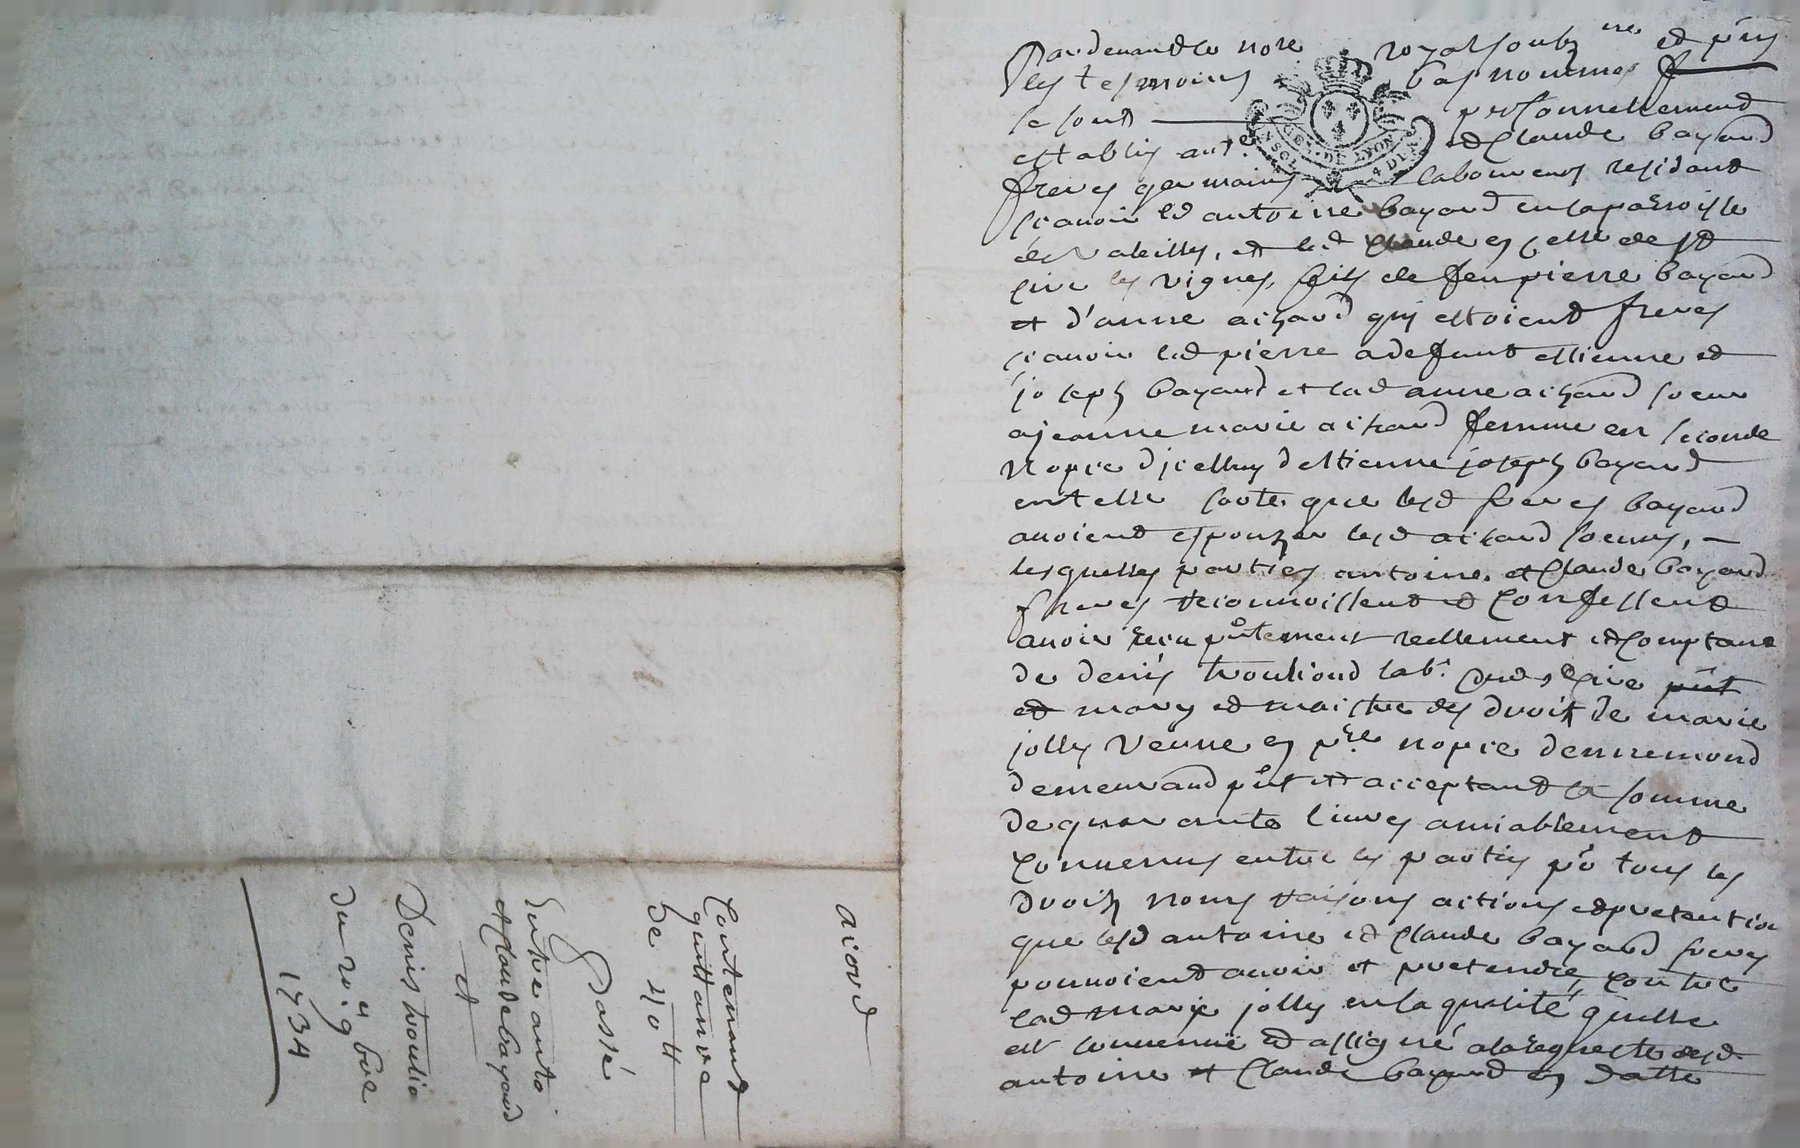 Pardevand le no.re royal soubz.ne et prns
les tesmoins bas nommes f
se sont personnellement
establis ant.e et Claude bayard
freres germains laboureurs residant
scavoir led antoine bayard en la parroisse
de valeilly, et led Claude en celle de st
cire les vignes, fils de feu pierre bayard
et d'anne achard qui estoient freres
scavoir led pierre a defunt estienne et
joseph bayard et lad anne achard soeur
a jeanne marie achard femme en seconde
nopce d'icelluy d'estienne joseph bayard
en telle sorte que lesd freres bayard
avoient espouzer lesd achard soeurs,
lesquelles parties antoine et Claude bayard
freres reconnoissent et confessent
avoir recu pntement reellement et comptant
de denis troulioud lab.r dud st Cire pnt
et mary et maistre des droits de marie
jolly veuve en p.re nopce
demeurand pnt et acceptant la somme
de quarante livres amiablement
convenus entre les parties po tous les
droits noms raisons actions et pretention
que lesd antoine et Claude bayard freres
pouvoient avoir et pretendre, contre
lad marie jolly en la qualité quelle
est convenue et assigné a la requeste desd
antoine et Claude bayard en datte
acord
Contenant
quittance
de 40 tt
Passé
Entre anto
et Claude bayard
et
Denis troulio
du 20e 9bre
1734
GEN. DE LYON